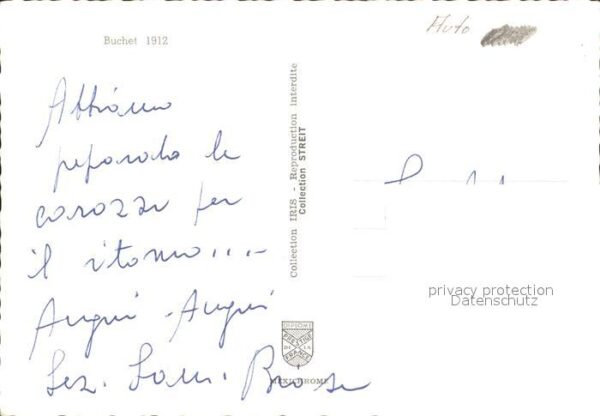 Auto
Buchet 1912
Abbiamo
preparato le
carozze per
il ritorno....
Auguri - Auguri
Collection IRIS - Reproduction interdite
Collection STREIT
privacy protection
Datenschutz
MEXICHROME